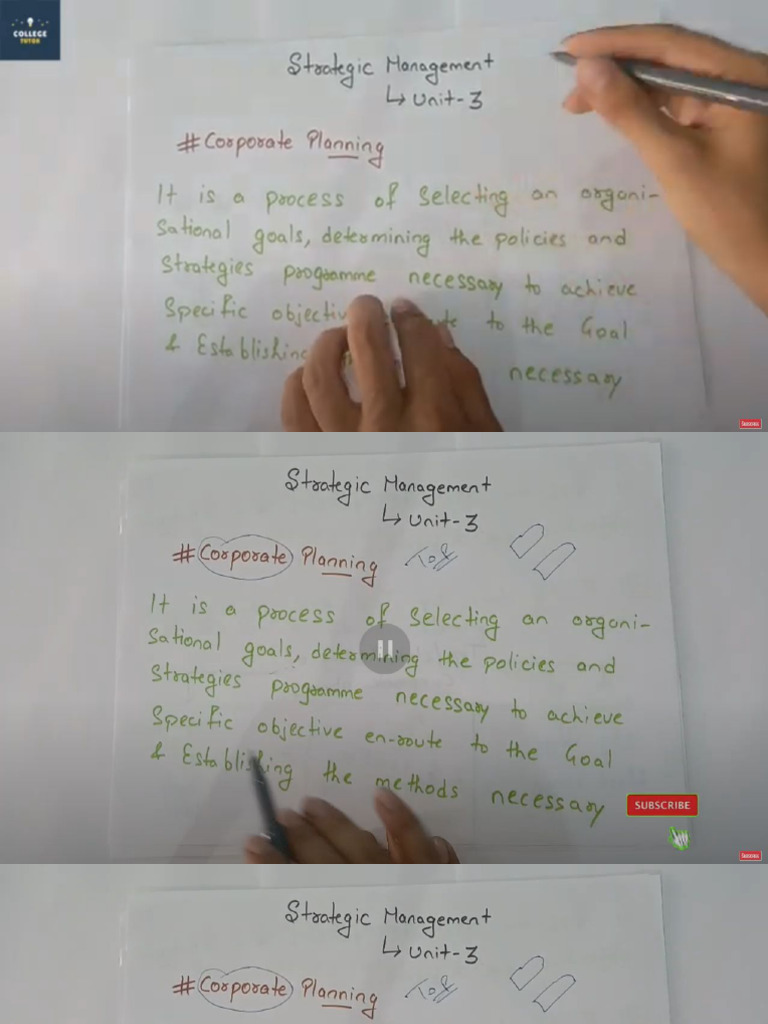 COLLEGE
TUTOR
Strategic Management
↳ Unit-3
# Corporate Planning
It is a process of selecting an organi-
sational goals, determining the policies and
Strategies programme necessary to achieve
Specific objectiv to the Goal
& Establishing
necessary
SUBSCRIBE
Strategic Management
↳ Unit-3
# Corporate Planning
It is a process of selecting an organi-
sational goals, determining the policies and
Strategies programme necessary to achieve
Specific objective en-route to the Goal
& Establishing the methods necessary
SUBSCRIBE
SUBSCRIBE
Strategic Management
↳ Unit-3
# Corporate Planning